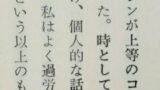 ンが上等のコ
た。時として
け、個人的な話
私はよく過労
という以上のも